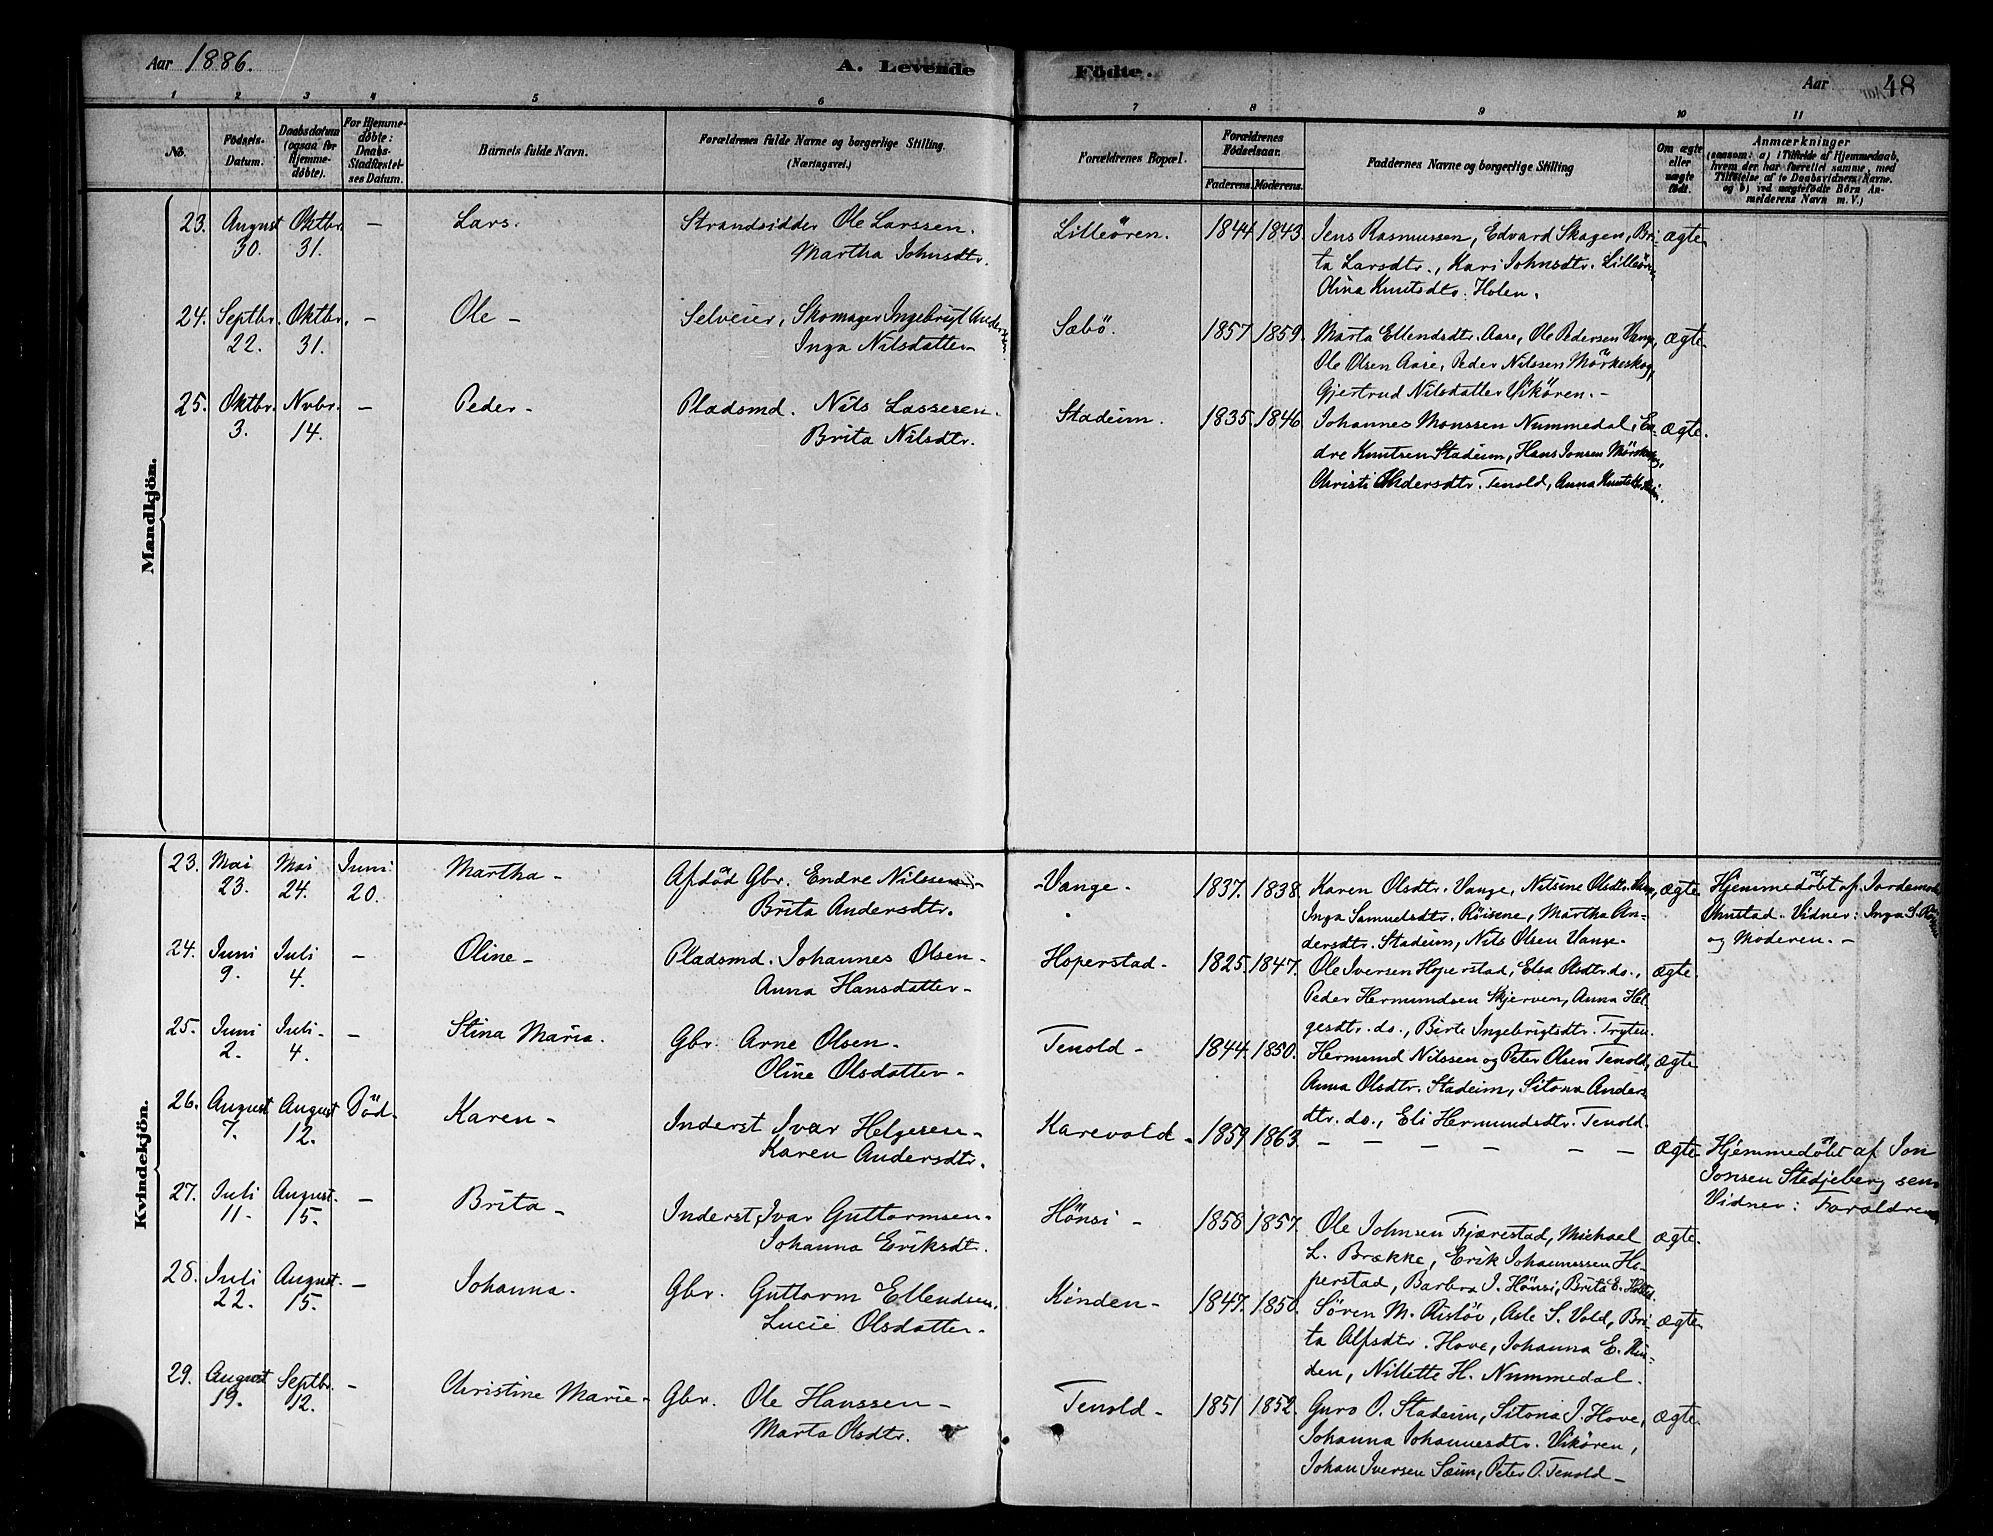 Aar 1886. A. Levende Födte. Aar 48
1 2 3 4 5 6 7 8 9 10 11
No. Födsels-Datum. Daabsdatum (ogsaa for Hjemmedöbte). For Hjemmedöbte: Daabs-Stadfæstelses Datum. Barnets fulde Navn. Forældrenes fulde Navne og borgerlige Stilling. (Næringsvei.) Forældrenes Bopæl. Forældrenes Födselsaar. Faderens. Moderens. Faddernes Navne og borgerlige Stilling Om ægte eller uægte födt. Anmærkninger (saasom: a) i Tilfælde af Hjemmedaab, hvem der har forrettet samme, med Tilföielse af to Daabsvidners Navne. og b) ved uægtefödte Börn Anmelderens Navn m. V.)
Mandkjön.
23. August Oktbr. – Lars. Strandsidder Ole Larssen. Lilleören. 1844 1843. Jens Rasmussen, Edvard Skagen, Bri- ægte
30. 31. Martha Johnsdtr. ta Larsdtr., Kari Johnsdtr. Lilleören,
Olina Knutsdtr. Holen.
24. Septbr. Oktbr. – Ole – Selveier, Skomager Ingebrigt Andersen Sæbö. 1857 1859. Marta Ellendsdtr. Aase, Ole Pedersen Vange, ægte.
22. 31. Inga Nilsdatter – Ole Olsen Aase, Peder Nilssen Mörkeskog,
Gjertrud Nilsdatter Vikören. –
25. Oktbr. Nvbr. – Peder – Pladsmd. Nils Lassesen. Stadeim. 1835. 1846. Johannes Monssen Nummedal, En- ægte.
3. 14. Brita Nilsdtr. dre Knutsen Stadeim, Hans Jonsen
Christi Andersdtr. Tenold, Anna
Kvindekjön.
23. Mai Mai Juni Martha – Afdöd Gbr. Endre Nilssen – Vange. 1837. 1838. Karen Olsdtr. Vange, Nilsine Olsdtr. ægte Hjemmedöbt af Jordemoder
23. 24. 20. Brita Andersdtr. Inga Samuelsdtr. Röisene, Martha An- Ohnstad. Vidner: Inga S.
dersdtr. Stadeim, Nils Olsen Vange. og Moderen. –
24. Juni Juli – Oline – Pladsmd. Johannes Olsen – Hoperstad – 1825. 1847. Ole Iversen Hoperstad, Elsa Olsdtr. do., ægte.
9. 4. Anna Hansdatter – Peder Hermundsen Skjerven, Anna Hel-
gesdtr. do., Birte Ingebrigtsdtr. Tryten.
25. Juni Juli – Stina Maria. Gbr. Arne Olsen – Tenold – 1844. 1850. Hermund Nilssen og Peter Olsen Tenold, ægte
2. 4. Oline Olsdatter – Anna Olsdtr. Stadeim, Sitona Anders-
dtr. do., Eli Hermundsdtr. Tenold.
26. August August Död. Karen – Inderst Ivar Helgesen – Karevold – 1859. 1863. – – – – – – ægte Hjemmedöbt af Jon
7. 12. Karen Andersdtr. Jonsen Stedjeberg sen.
Vidner: Forældrene
27. Juli August. – Brita – Inderst Ivar Guttormsen – Hönsi – 1858 1857. Ole Johnsen Fjærestad, Michael ægte.
11. 15. Johanna Eriksdt. L. Brække, Erik Johannessen Ho-
perstad, Barbra J. Hönsi, Brita E.
28. Juli August. – Johanna. Gbr. Guttorm Ellendsen. Kinden – 1847. 1850. Sören M. Ovislöv, Asle S. Vold, Bri- ægte
22. 15. Lucie Olsdatter – ta Alfsdtr. Hove, Johanna E. Kin-
den, Nillette H. Nummedal.
29. August Septbr. – Christine Marie – Gbr. Ole Hanssen – Tenold – 1851 1852. Guro O. Stadeim, Sitona J. Hove, ægte
19. 12. Marta Olsdtr. Johanna Johannesdtr. Vikören,
Johan Iversen Sæim, Peter O. Tenold –